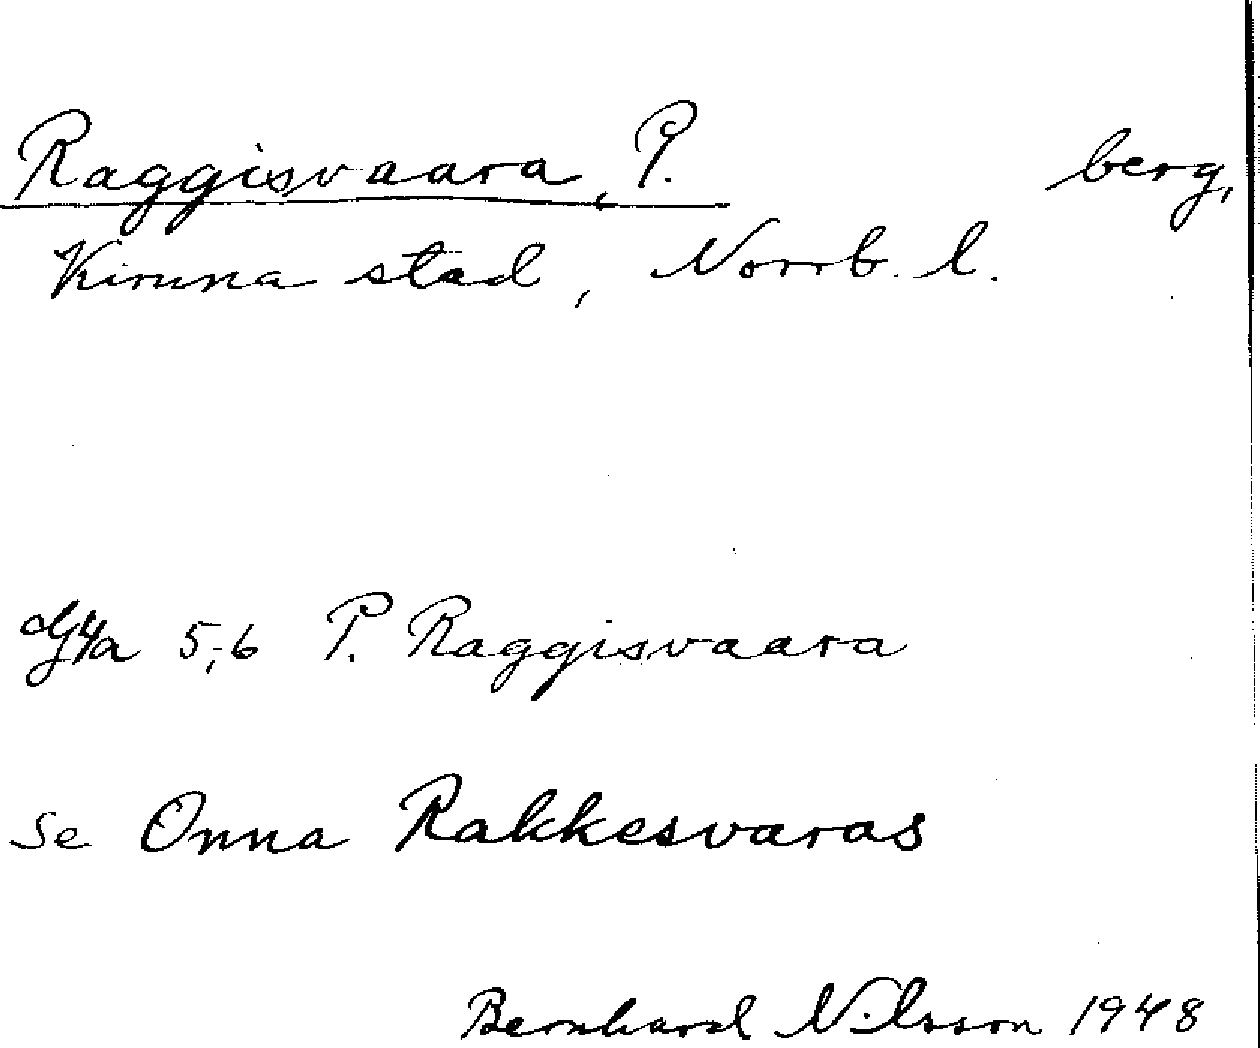 Raggisvaara, P. berg,
Kiruna stad, Norrb. l.
5,-6 P. Raggisvaara
se Onna Rakkesvaras
Bernhard Nilsson 1948